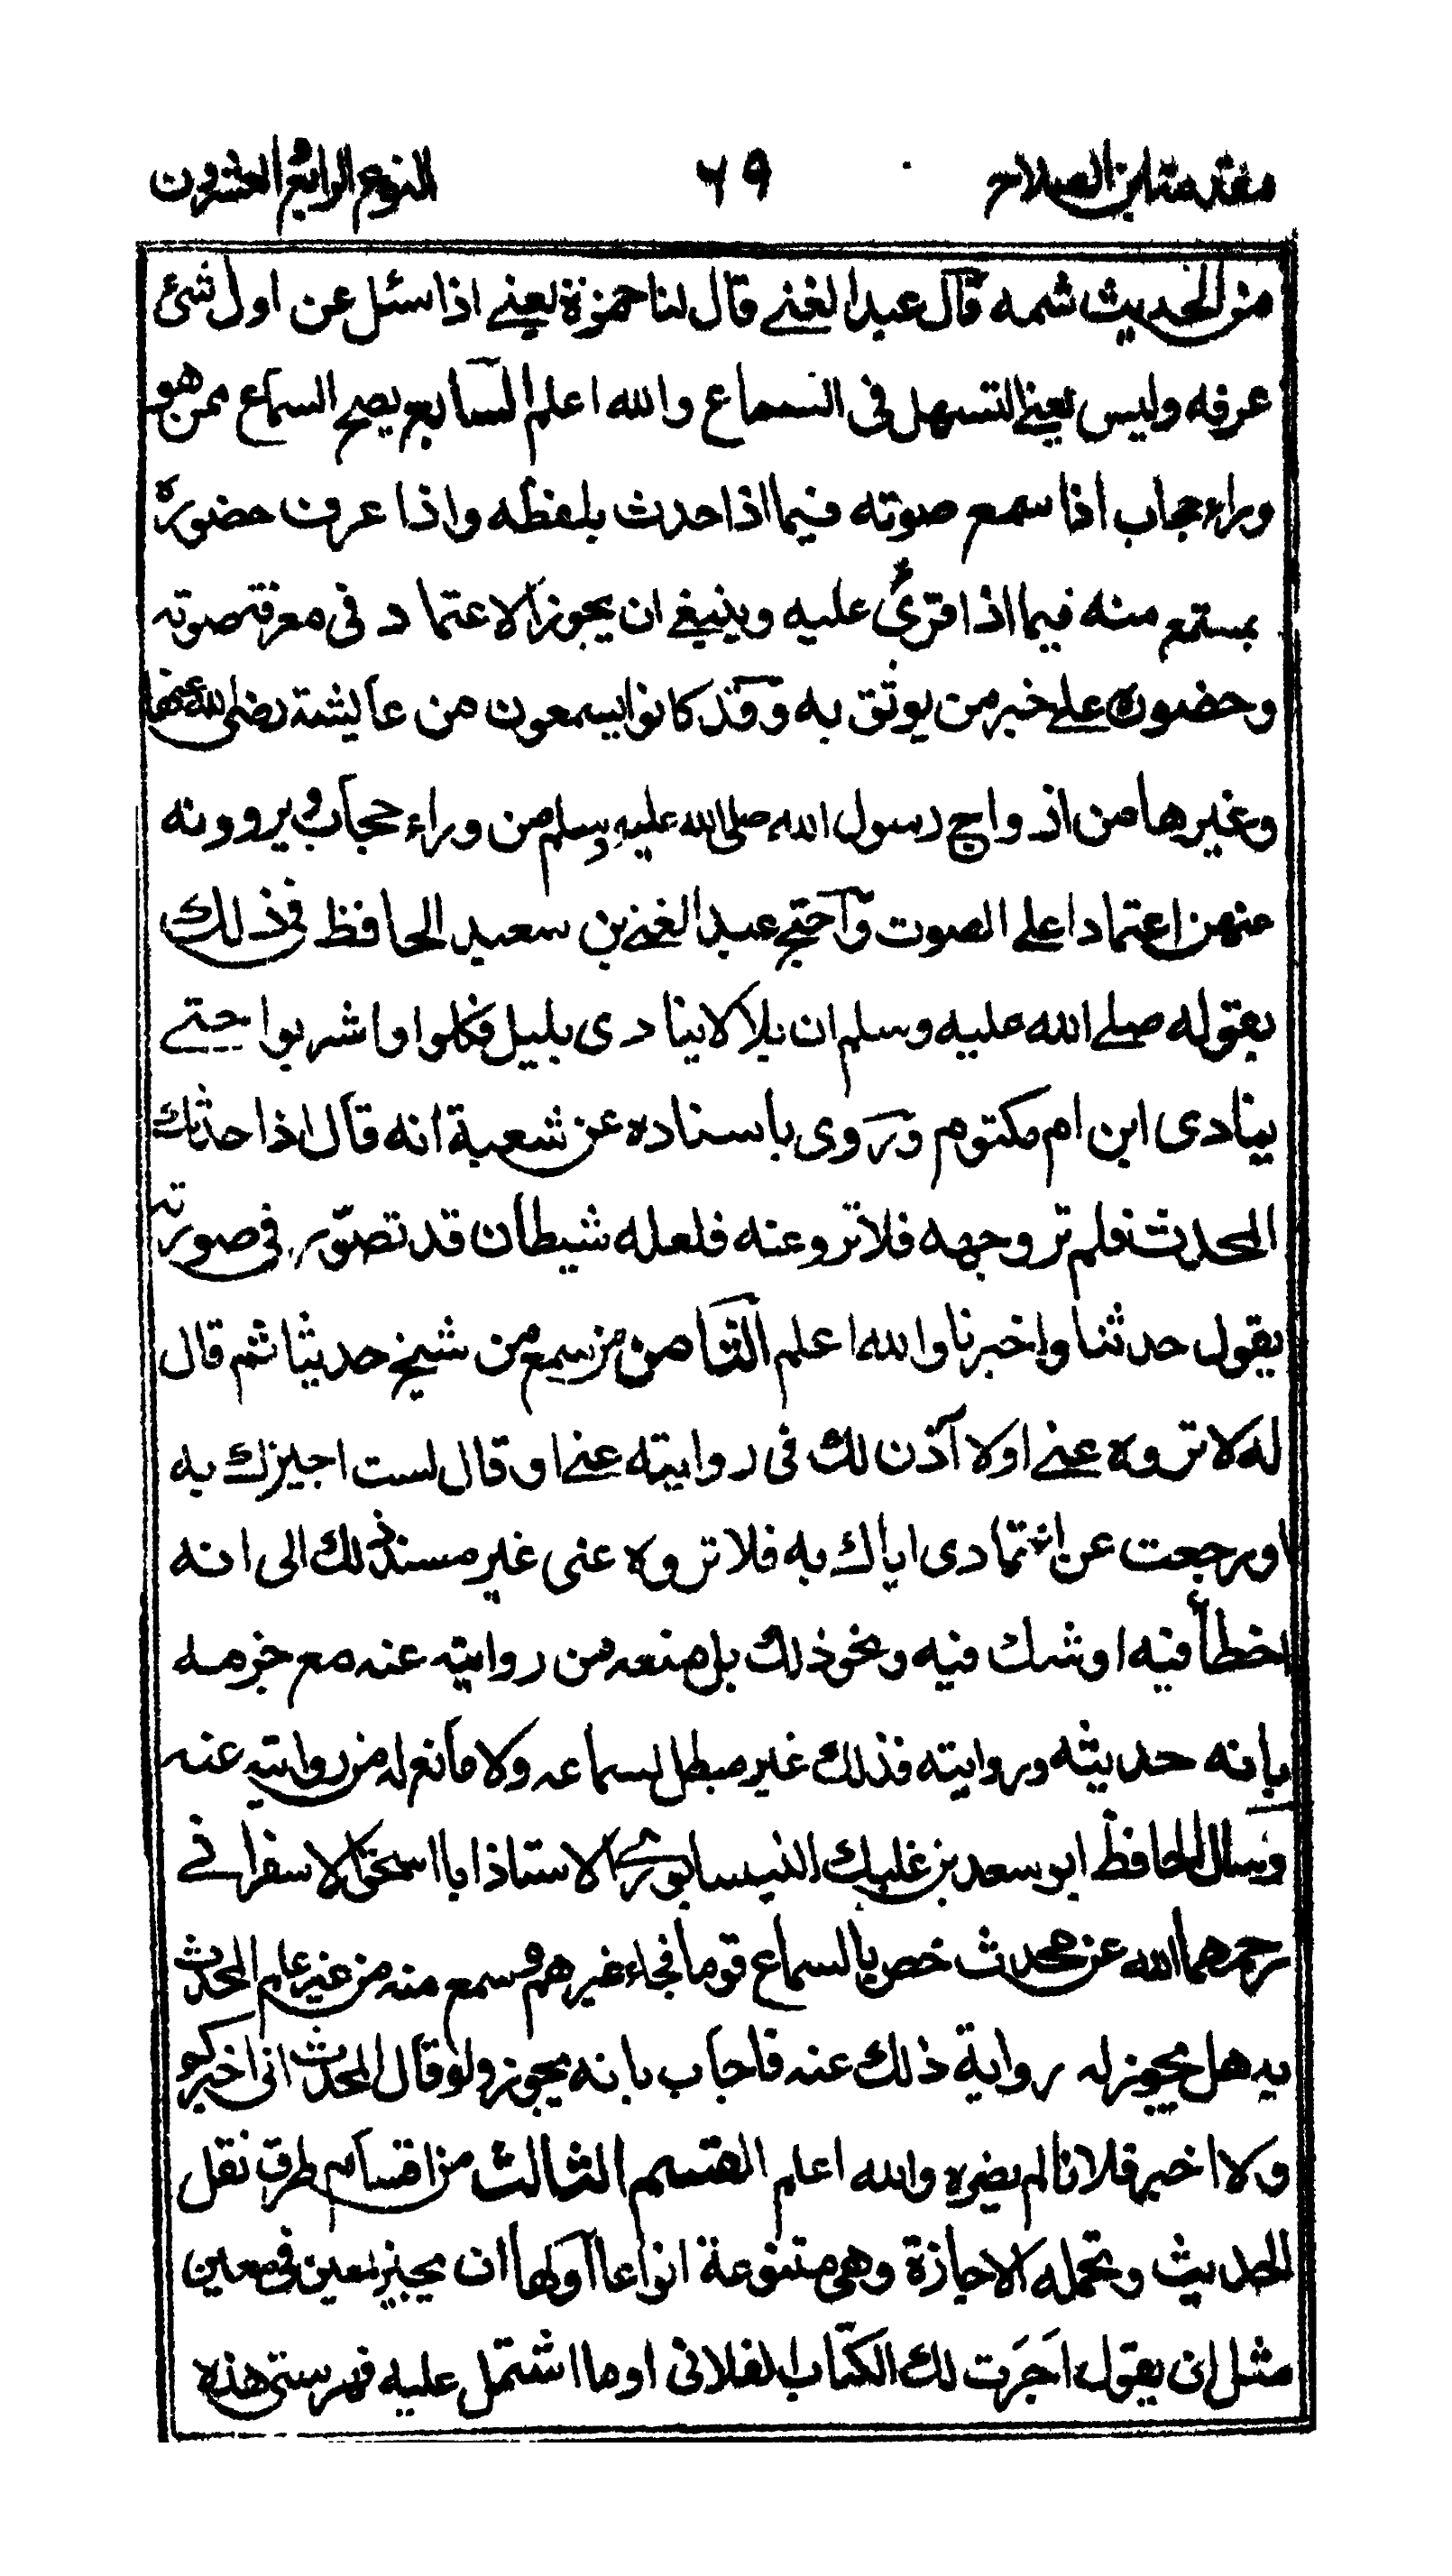 مقدمة ابن الصلاح ٦٩ النوع الرابع العشرون
من الحديث شمه قال عبد الغني قال لنا حمزة يعني اذا سئل عن اول شئ
عرفه وليس يعني التسهل في السماع والله اعلم السابع يصح السماع ممن هو
وراء حجاب اذا سمع صوته فيما اذا حدث بلفظه واذا عرف حضوره
بمستمع منه فيما اذا قرئ عليه وينبغي ان يجوز الاعتماد في معرفة صوته
وحضوره على خبر من يوثق به وقد كانوا يسمعون من عايشة رضي الله عنها
وغيرها من ازواج رسول الله صلى الله عليه وسلم من وراء حجاب ويروونه
عنهن اعتمادا على الصوت واحتج عبد الغني بن سعيد الحافظ في ذلك
بقوله صلى الله عليه وسلم ان بلالا ينادى بليل فكلوا واشربوا حتى
ينادى ابن ام مكتوم وروى باسناده عن شعبة انه قال اذا حدثك
المحدث فلم تر وجهه فلا ترو عنه فلعله شيطان قد تصوّر في صورته
يقول حدثنا واخبرنا والله اعلم الثامن من سمع من شيخ حديثا ثم قال
له لا تروه عني او لا آذن لك في روايته عني او قال لست اجيزك به
او رجعت عن اعتمادى اياك به فلا تروه عنى غير مسند ذلك الى انه
اخطأ فيه او شك فيه ونحو ذلك بل منعه من روايته عنه مع جزمه
بانه حديثه وروايته فذلك غير مبطل لسماعه ولا مانع له من روايته عنه
وسال الحافظ ابو سعد بن عليك النيسابوري الاستاذ ابا اسحق الاسفرائني
رحمهما الله عن محدث خص بالسماع قوما فجاء غيرهم وسمع منه من غير علم المحدث
به هل يجوز له رواية ذلك عنه فاجاب بانه يجوز ولو قال المحدث انى اخبركم
ولا اخبر فلانا لم يضره والله اعلم القسم الثالث من اقسام طرق نقل
الحديث وتحمله الاجازة وهي متنوعة انواعا اولها ان يجيز لمعين في معين
مثل ان يقول اجزت لك الكتاب الفلانى او ما اشتمل عليه فهرستى هذه